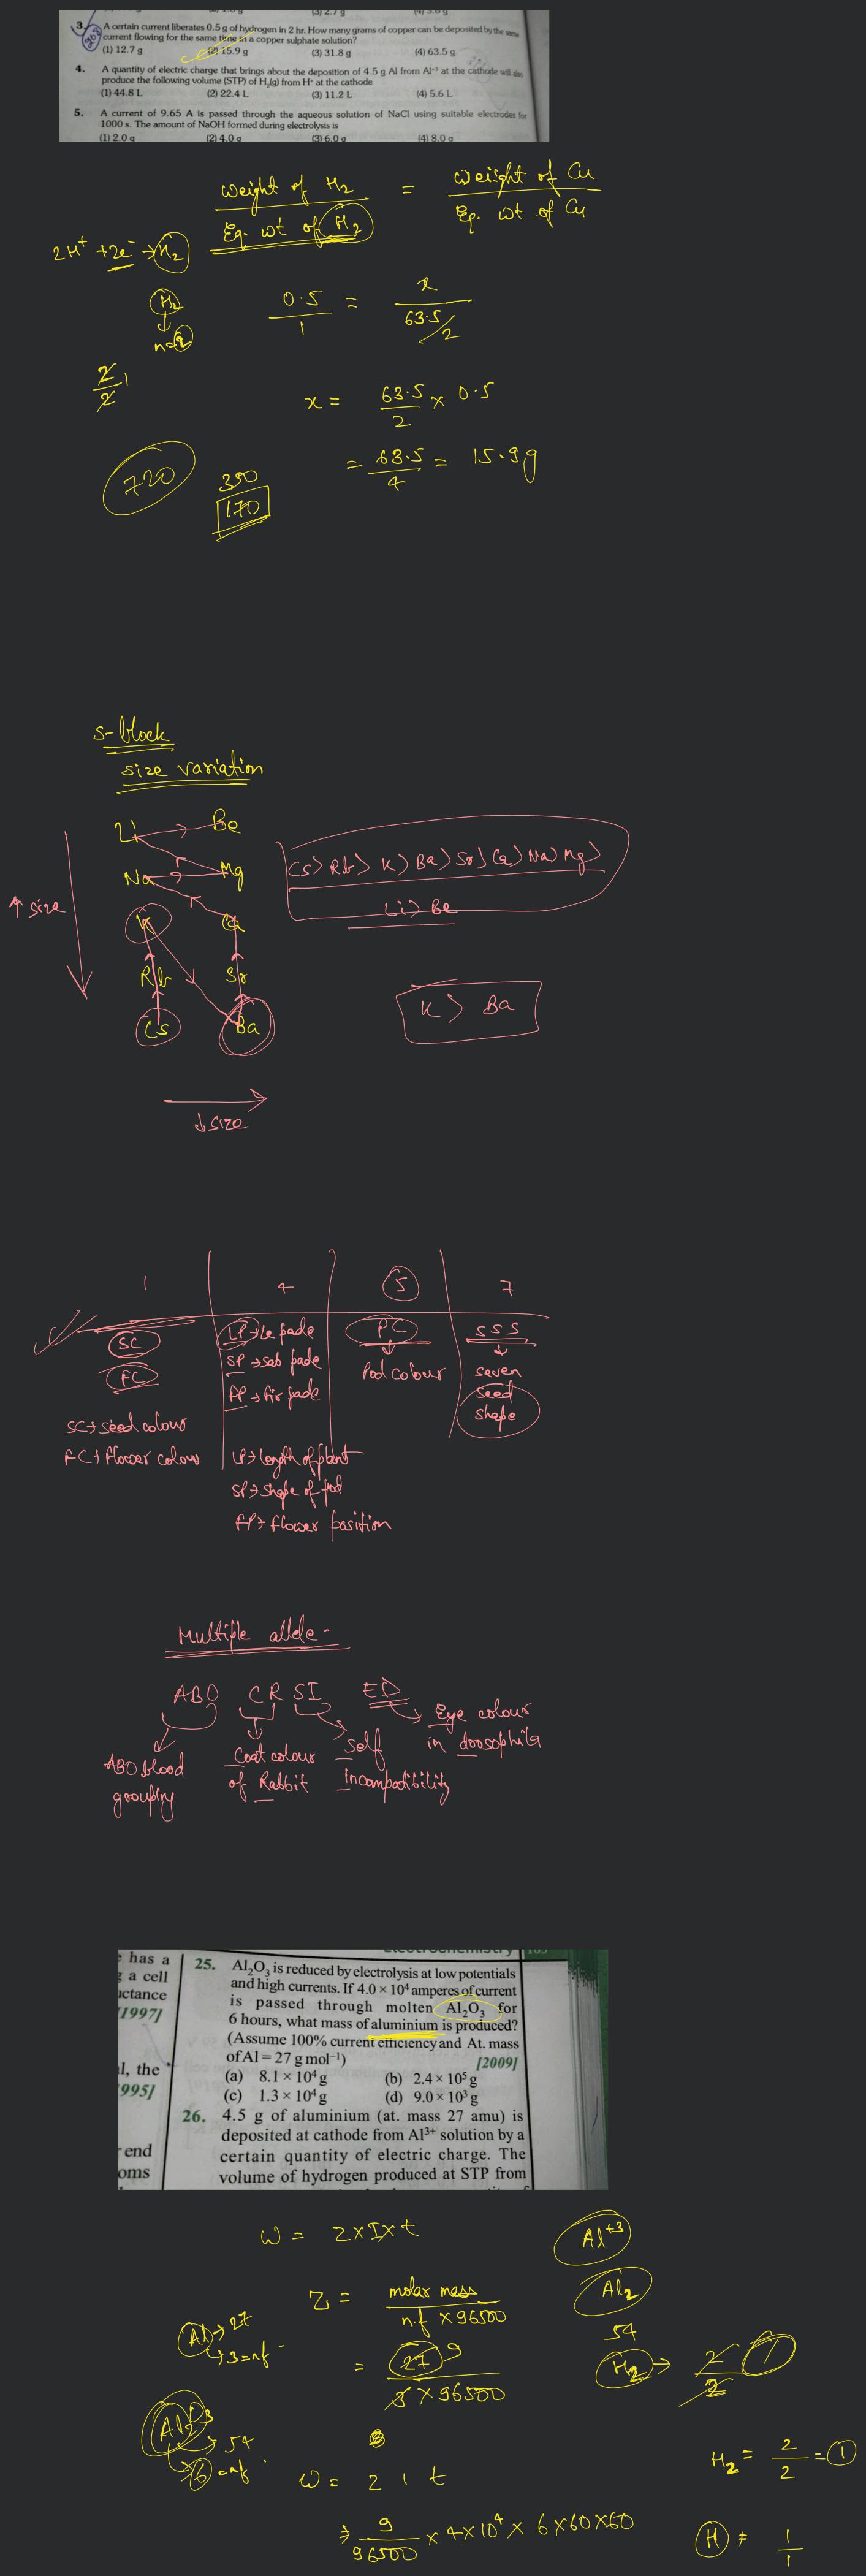 3. A certain current liberates 0.5 g of hydrogen in 2 hr. How many grams of copper can be deposited by the same
current flowing for the same time in a copper sulphate solution?
(1) 12.7 g (2) 15.9 g (3) 31.8 g (4) 63.5 g
4. A quantity of electric charge that brings about the deposition of 4.5 g Al from Al+3 at the cathode will also
produce the following volume (STP) of H2(g) from H+ at the cathode
(1) 44.8 L (2) 22.4 L (3) 11.2 L (4) 5.6 L
5. A current of 9.65 A is passed through the aqueous solution of NaCl using suitable electrodes for
1000 s. The amount of NaOH formed during electrolysis is
(1) 2.0 g (2) 4.0 g (3) 6.0 g (4) 8.0 g
weight of H2 / Eq. wt of H2 = weight of Cu / Eq. wt of Cu
2H+ + 2e- → H2
H2
n=2
0.5 / 1 = x / 63.5/2
2/2 1
x = 63.5/2 × 0.5
= 63.5/4 = 15.9g
720
350
170
s-block
size variation
Li Be
Na Mg
K Ca
Rb Sr
Cs Ba
↑ size
↓ size
Cs > Rb > K > Ba > Sr > Ca > Na > Mg >
Li > Be
K > Ba
1 4 5 7
SC
FC
SC → seed colour
FC → flower colour
LP → Le pade
SP → sab pade
FP → fir pade
LP → length of plant
SP → shape of pod
FP → flower position
PC
Pod colour
SSS
seven
seed
shape
Multiple allele -
ABO CR SI ED
ABO blood
grouping
Coat colour
of Rabbit
Self
Incompatibility
Eye colour
in drosophila
Electrochemistry 163
e has a
g a cell
uctance
[1997]
l, the
995]
end
oms
25. Al2O3 is reduced by electrolysis at low potentials
and high currents. If 4.0 × 10^4 amperes of current
is passed through molten Al2O3 for
6 hours, what mass of aluminium is produced?
(Assume 100% current efficiency and At. mass
of Al = 27 g mol–1) [2009]
(a) 8.1 × 10^4 g (b) 2.4 × 10^5 g
(c) 1.3 × 10^4 g (d) 9.0 × 10^3 g
26. 4.5 g of aluminium (at. mass 27 amu) is
deposited at cathode from Al3+ solution by a
certain quantity of electric charge. The
volume of hydrogen produced at STP from
W = Z×I×t
Z = molar mass / n.f × 96500
Al → 27
→ 3 = nf
= 27 9 / 3 × 96500
Al+3
Al2
54
H2 → 2/2 1
54
6 = nf
W = Z i t
⇒ 9/96500 × 4×10^4 × 6×60×60
H2 = 2/2 = 1
H = 1/1